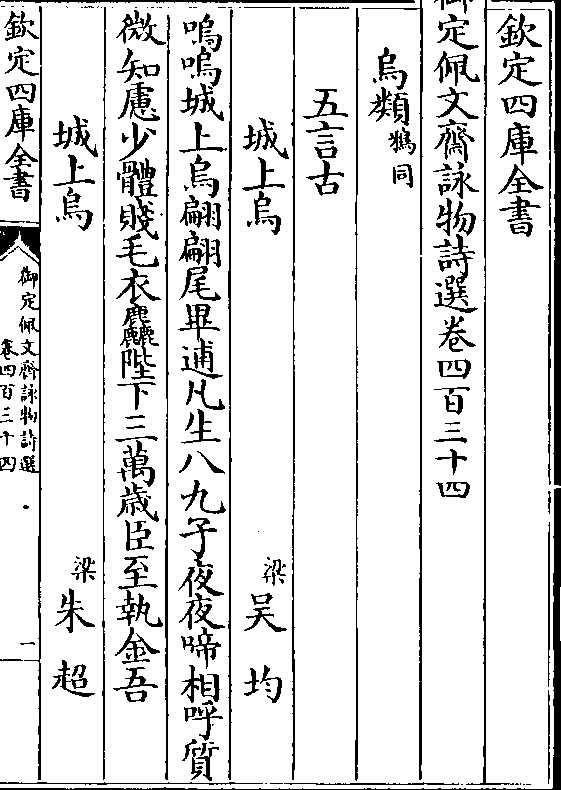 欽定四庫全書
御定佩文齋詠物詩選卷四百三十四
烏類鵶同
五言古
城上烏 梁吴均
嗚嗚城上烏翩翩尾畢逋凡生八九子夜夜啼相呼質
微知慮少體賤毛衣麤陛下三萬歲臣至執金吾
城上烏 梁朱超
欽定四庫全書
御定佩文齋詠物詩選
卷四百三十四
一